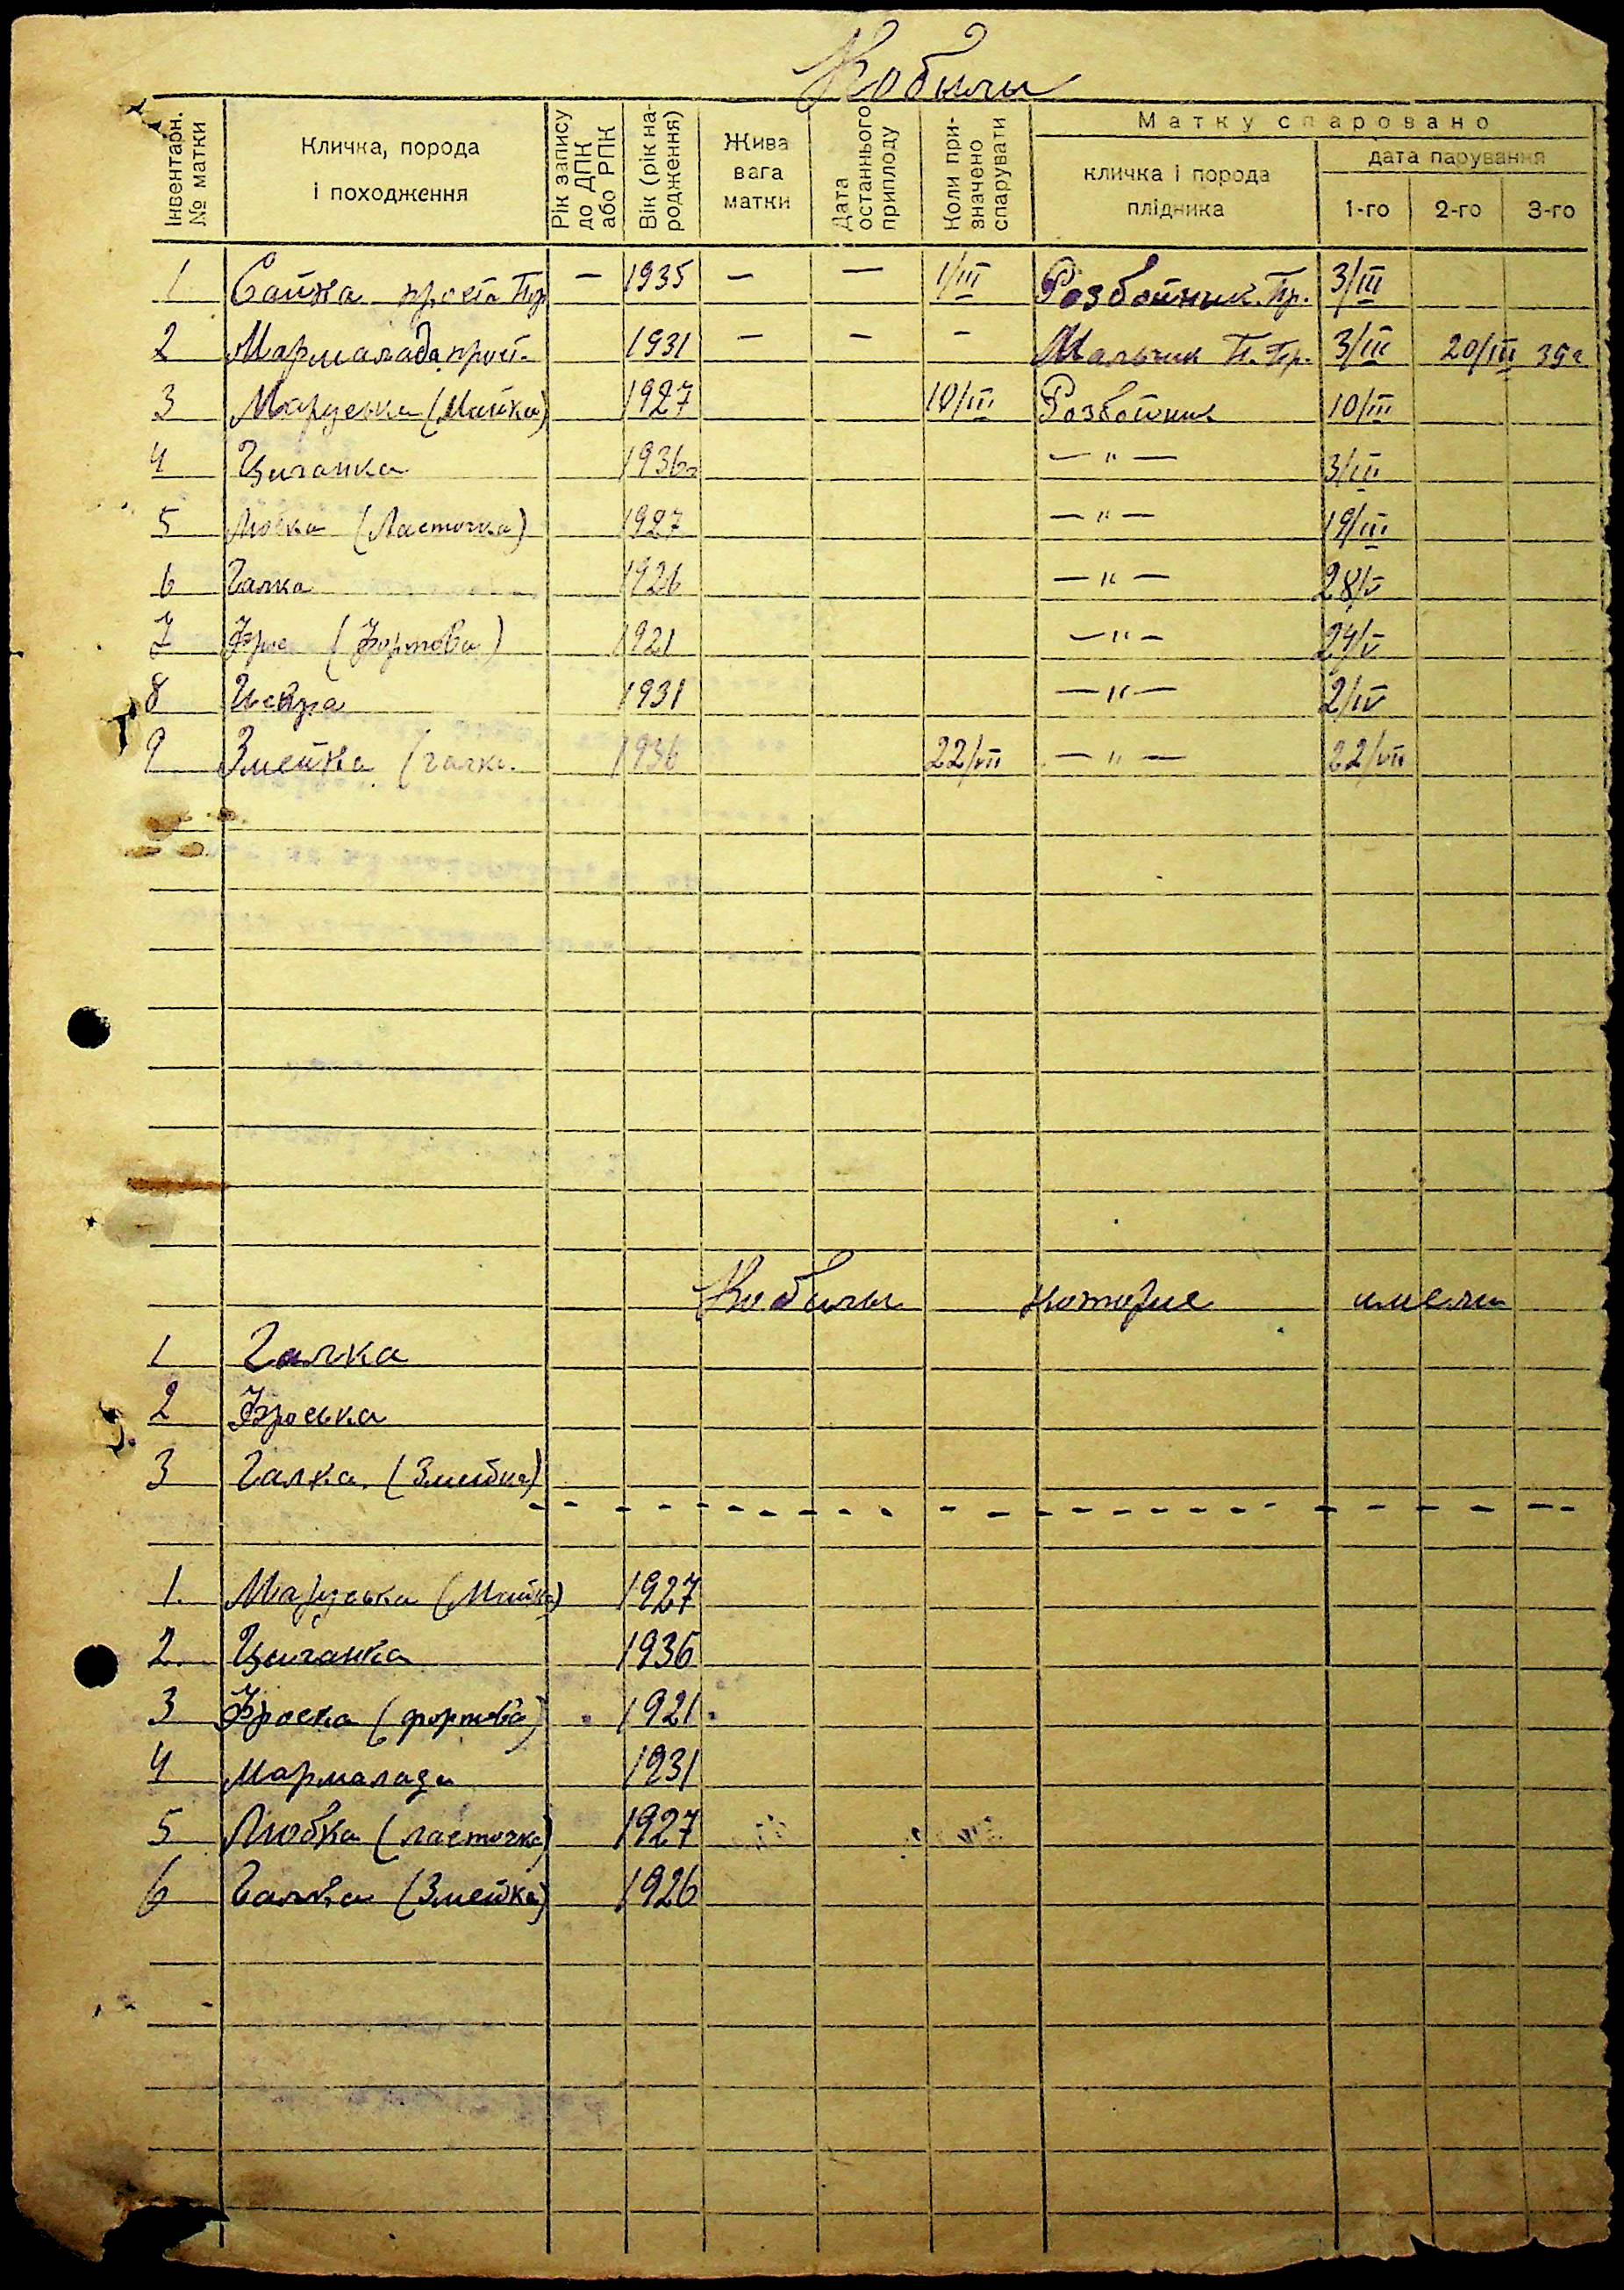 Кобили
Інвентарн. № матки
Кличка, порода і походження
Рік запису до ДПК або РПК
Вік (рік народження)
Жива вага матки
Дата останнього приплоду
Коли призначено спарувати
Матку спаровано
кличка і порода плідника
дата парування
1-го 2-го 3-го
1 Сайка проста Пор — 1935 — — 1/III Розбойник. Пр. 3/III
2 Мармалада прост. 1931 — — — Мальчик П. Пр. 3/III 20/III 39г
3 Маруська (Майка) 1927 10/III Розбойник 10/III
4 Циганка 1936г — " — 3/III
5 Любка (Ласточка) 1927 — " — 19/III
6 Галка 1926 — " — 28/V
7 (Фортова) 1921 — " — 24/V
8 Искра 1931 — " — 2/IV
9 Змейка (галка. 1936 22/VII — " — 22/VII
Кобили которие имели
1 Галка
2 Фроська
3 Галка. (Змейка)
1. Маруська (Майка) 1927
2. Циганка 1936
3 Фроська (фортова) 1921
4 Мармалада 1931
5 Любка (ласточка) 1927
6 Галка (Змейка) 1926